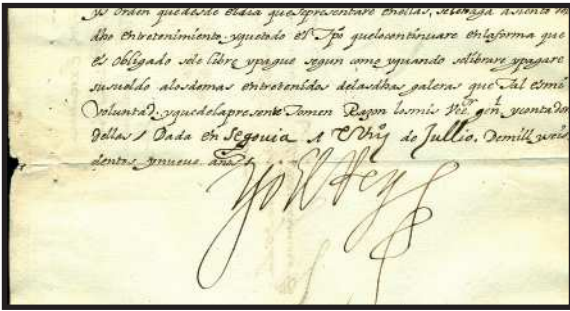 y orden que desde el dia que se presentare en ellas, se le haga asiento del
dho entretenimiento, y que todo el tpo que lo continuare en la forma que
es obligado se le libre y pague segun como y quando se librare y pagare
su sueldo a los demas entretenidos de las dhas galeras que tal es mi
voluntad. y que de la presente tomen Razon los mis Veedor genl. y contador
dellas / Dada en Segovia A de Jullio. De mill y seis
cientos y nueve años
Yo El Rey